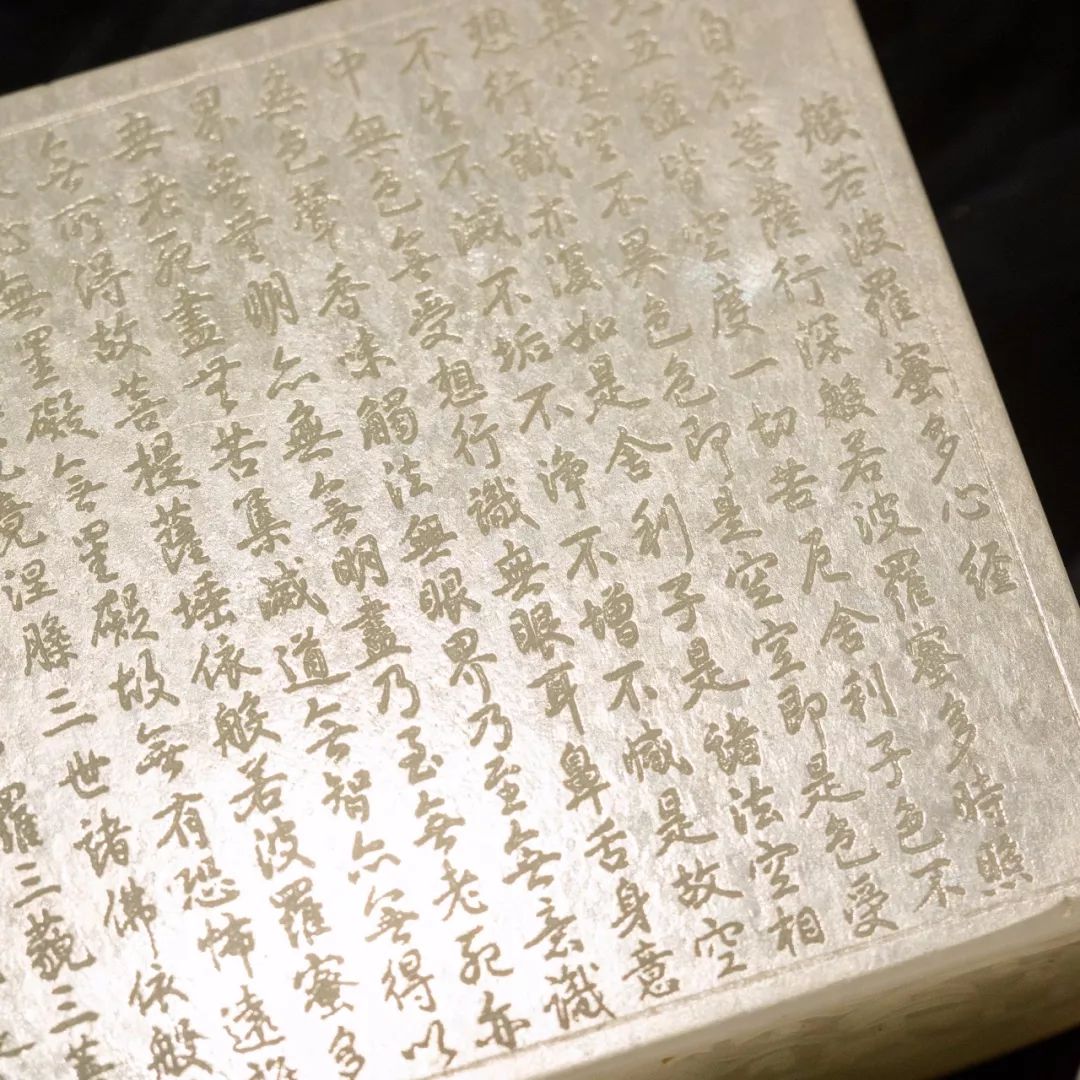 般若波羅蜜多心經
自在菩薩行深般若波羅蜜多時照
五蘊皆空度一切苦厄舍利子色不
異空空不異色色即是空空即是色受
想行識亦復如是舍利子是諸法空相
不生不滅不垢不淨不增不減是故空
中無色無受想行識無眼耳鼻舌身意
無色聲香味觸法無眼界乃至無意識
界無無明亦無無明盡乃至無老死亦
無老死盡無苦集滅道無智亦無得以
無所得故菩提薩埵依般若波羅蜜多
心無罣礙無罣礙故無有恐怖遠
竟涅槃三世諸佛依般
羅三藐三菩